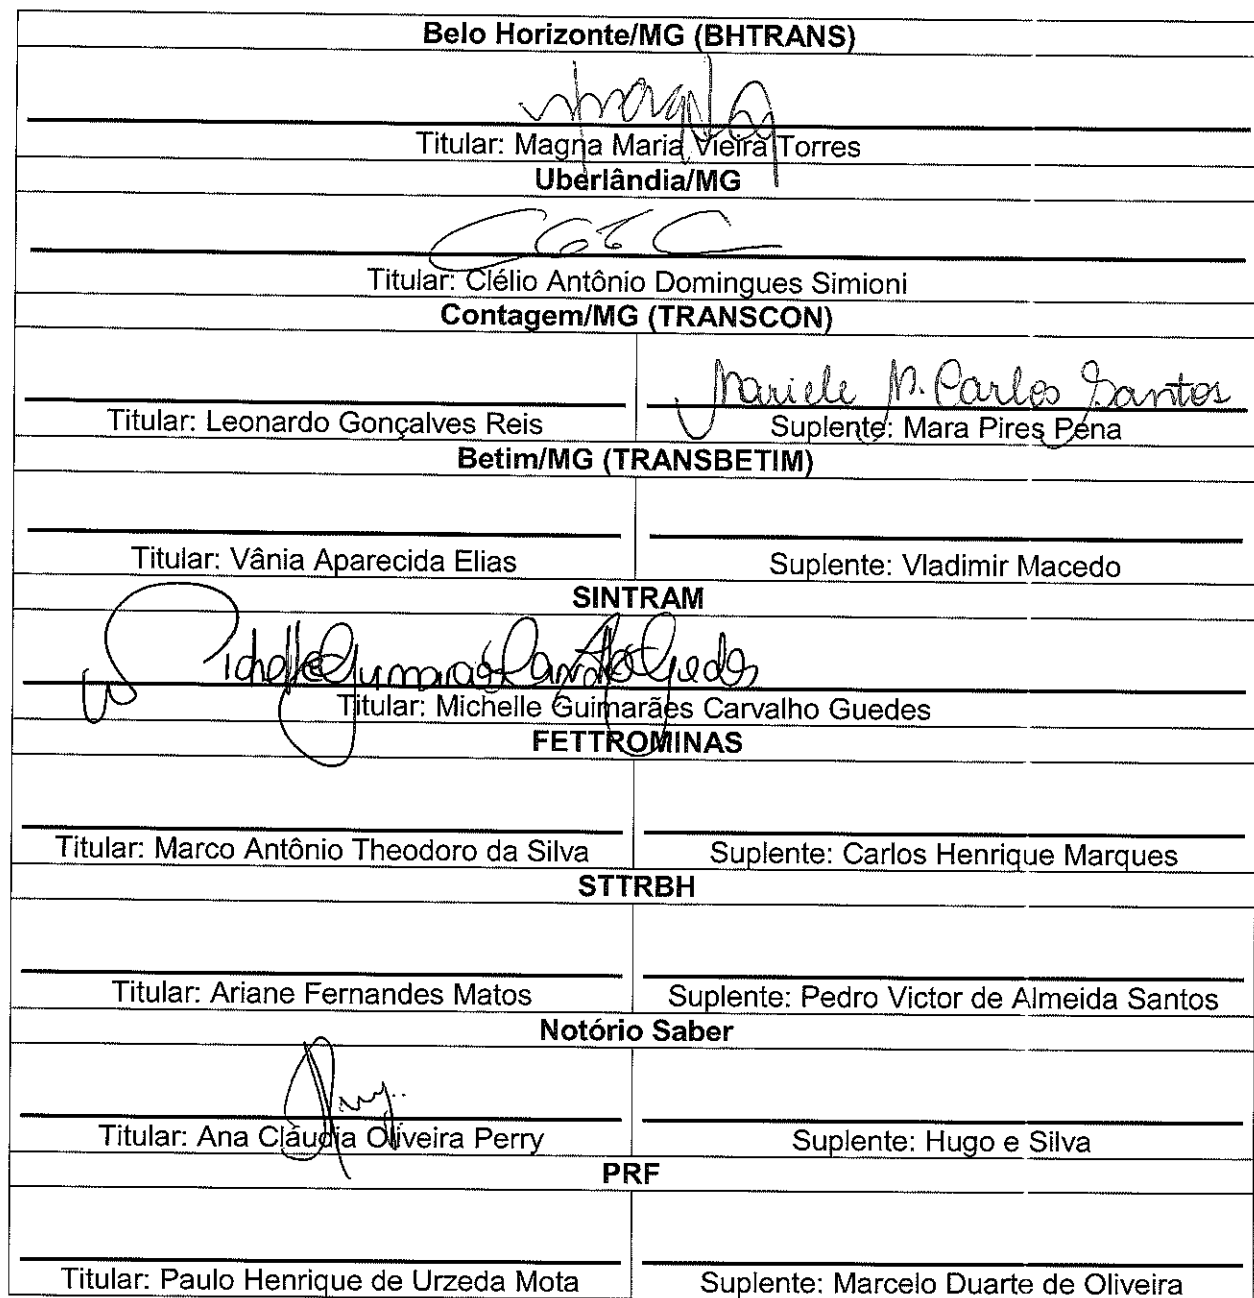 Belo Horizonte/MG (BHTRANS)
Titular: Magna Maria Vieira Torres
Uberlândia/MG
Titular: Clélio Antônio Domingues Simioni
Contagem/MG (TRANSCON)
Mariele M. Carlos Santos
Titular: Leonardo Gonçalves Reis
Suplente: Mara Pires Pena
Betim/MG (TRANSBETIM)
Titular: Vânia Aparecida Elias
Suplente: Vladimir Macedo
SINTRAM
Michelle Guimarães Carvalho Guedes
Titular: Michelle Guimarães Carvalho Guedes
FETTROMINAS
Titular: Marco Antônio Theodoro da Silva
Suplente: Carlos Henrique Marques
STTRBH
Titular: Ariane Fernandes Matos
Suplente: Pedro Victor de Almeida Santos
Notório Saber
Titular: Ana Cláudia Oliveira Perry
Suplente: Hugo e Silva
PRF
Titular: Paulo Henrique de Urzeda Mota
Suplente: Marcelo Duarte de Oliveira